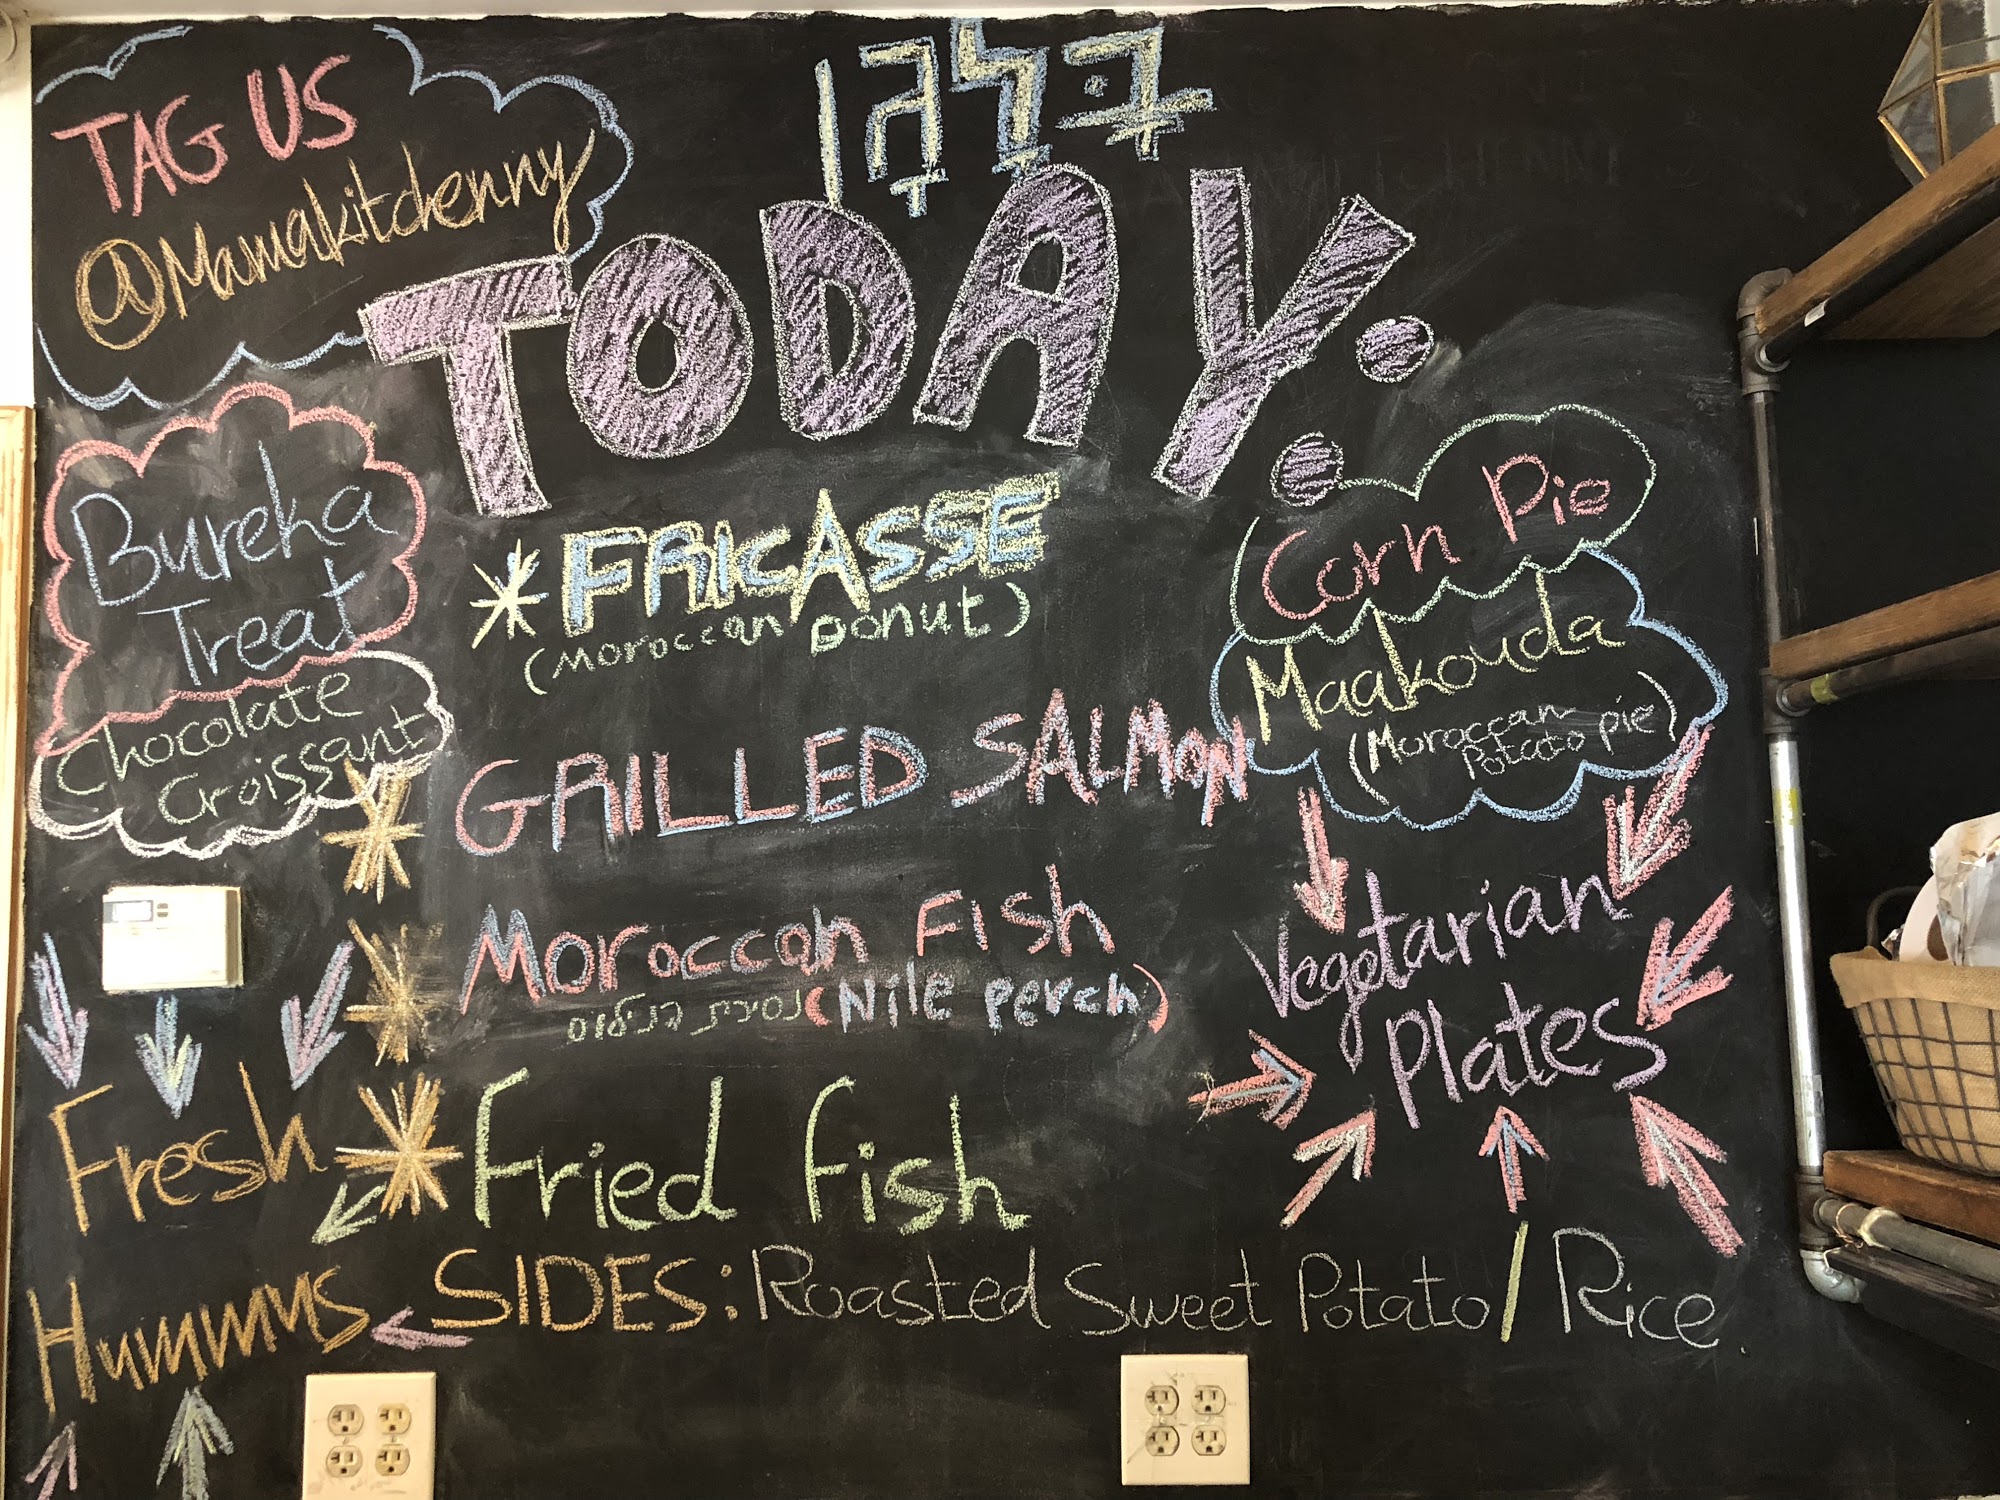 TAG US
@Mamakitchenny
TODAY:
Bureka
Treat
Chocolate
Croissant
* FRICASSE
(Moroccan Donut)
* GRILLED SALMON
* Moroccan Fish
נסיכת הנילוס (Nile perch)
* Fried fish
Corn Pie
Maakouda
(Moroccan
Potato pie)
Vegetarian
Plates
Fresh
Hummus
SIDES: Roasted Sweet Potato / Rice